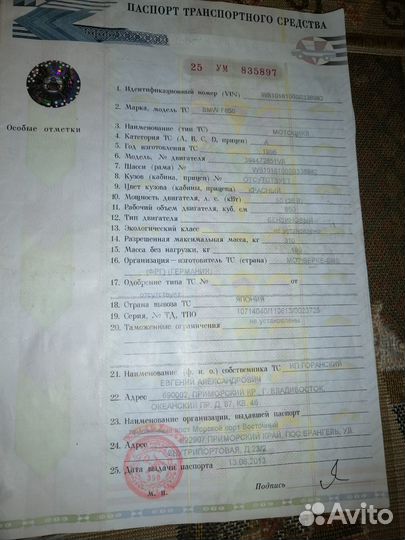 ПАСПОРТ ТРАНСПОРТНОГО СРЕДСТВА
25 УМ 835897
Особые отметки
1. Идентификационный номер (VIN)
2. Марка, модель ТС BMW F650
3. Наименование (тип ТС) МОТОЦИКЛ
4. Категория ТС (А, В, С, D, прицеп)
5. Год изготовления ТС
6. Модель, № двигателя
7. Шасси (рама) №
8. Кузов (кабина, прицеп) № ОТСУТСТВУЕТ
9. Цвет кузова (кабины, прицепа) КРАСНЫЙ
10. Мощность двигателя, л. с. (кВт)
11. Рабочий объем двигателя, куб. см
12. Тип двигателя БЕНЗИНОВЫЙ
13. Экологический класс не установлено
14. Разрешенная максимальная масса, кг 310
15. Масса без нагрузки, кг
16. Организация-изготовитель ТС (страна)
(ФРГ) (ГЕРМАНИЯ)
17. Одобрение типа ТС № от
отсутствует
18. Страна вывоза ТС ЯПОНИЯ
19. Серия, № ТД, ТПО 10714040/110613/0023725
20. Таможенные ограничения не установлены
21. Наименование (ф. и. о.) собственника ТС ИП ГОРАНСКИЙ
ЕВГЕНИЙ АЛЕКСАНДРОВИЧ
22. Адрес 690002, ПРИМОРСКИЙ КР., Г. ВЛАДИВОСТОК,
ОКЕАНСКИЙ ПР, Д. 87, КВ. 46
23. Наименование организации, выдавшей паспорт
пост Морской порт Восточный
24. Адрес ПРИМОРСКИЙ КРАЙ, ПОС ВРАНГЕЛЬ, УЛ.
25. Дата выдачи паспорта 13.06.2013
М. П.
Подпись
Avito